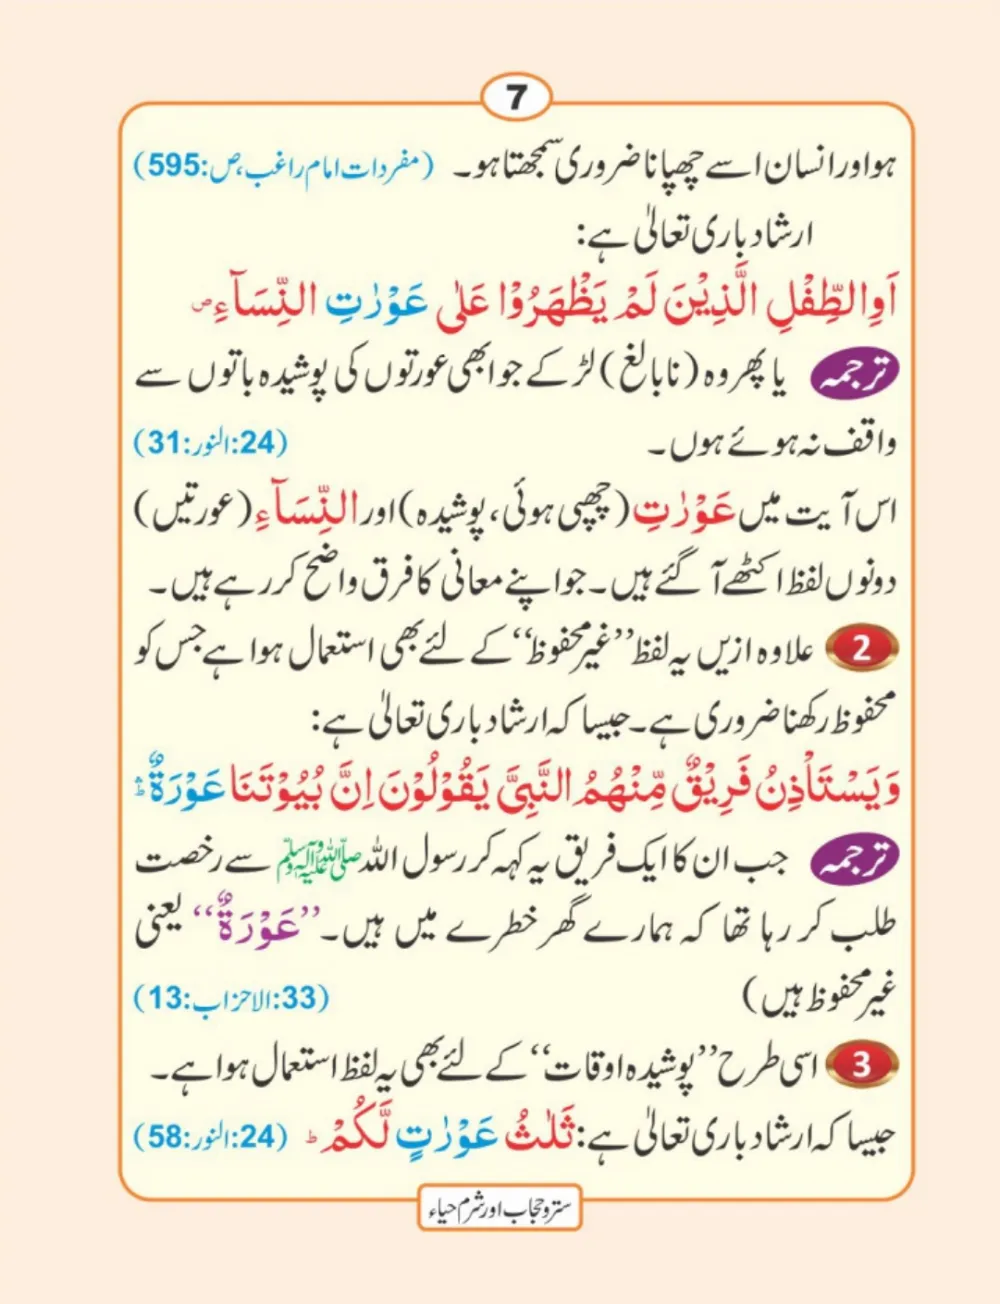 7
ہو اور انسان اسے چھپانا ضروری سمجھتا ہو۔ (مفردات امام راغب، ص:595)
ارشاد باری تعالیٰ ہے:
اَوِ الطِّفْلِ الَّذِیْنَ لَمْ یَظْهَرُوْا عَلٰی عَوْرٰتِ النِّسَآءِ ص
ترجمہ یا پھر وہ (نابالغ) لڑکے جو ابھی عورتوں کی پوشیدہ باتوں سے
واقف نہ ہوئے ہوں۔ (24:النور:31)
اس آیت میں عَوْرٰتِ (چھپی ہوئی، پوشیدہ) اور النِّسَآءِ (عورتیں)
دونوں لفظ اکٹھے آ گئے ہیں۔ جو اپنے معانی کا فرق واضح کر رہے ہیں۔
2 علاوہ ازیں یہ لفظ ’’غیر محفوظ‘‘ کے لئے بھی استعمال ہوا ہے جس کو
محفوظ رکھنا ضروری ہے۔ جیسا کہ ارشاد باری تعالیٰ ہے:
وَیَسْتَاْذِنُ فَرِیْقٌ مِّنْهُمُ النَّبِیَّ یَقُوْلُوْنَ اِنَّ بُیُوْتَنَا عَوْرَةٌ ؕۛ
ترجمہ جب ان کا ایک فریق یہ کہہ کر رسول اللہ ﷺ سے رخصت
طلب کر رہا تھا کہ ہمارے گھر خطرے میں ہیں۔ ’’عَوْرَةٌ‘‘ یعنی
غیر محفوظ ہیں) (33:الاحزاب:13)
3 اسی طرح ’’پوشیدہ اوقات‘‘ کے لئے بھی یہ لفظ استعمال ہوا ہے۔
جیسا کہ ارشاد باری تعالیٰ ہے: ثَلٰثُ عَوْرٰتٍ لَّكُمْ ؕ (24:النور:58)
ستر و حجاب اور شرم حیاء